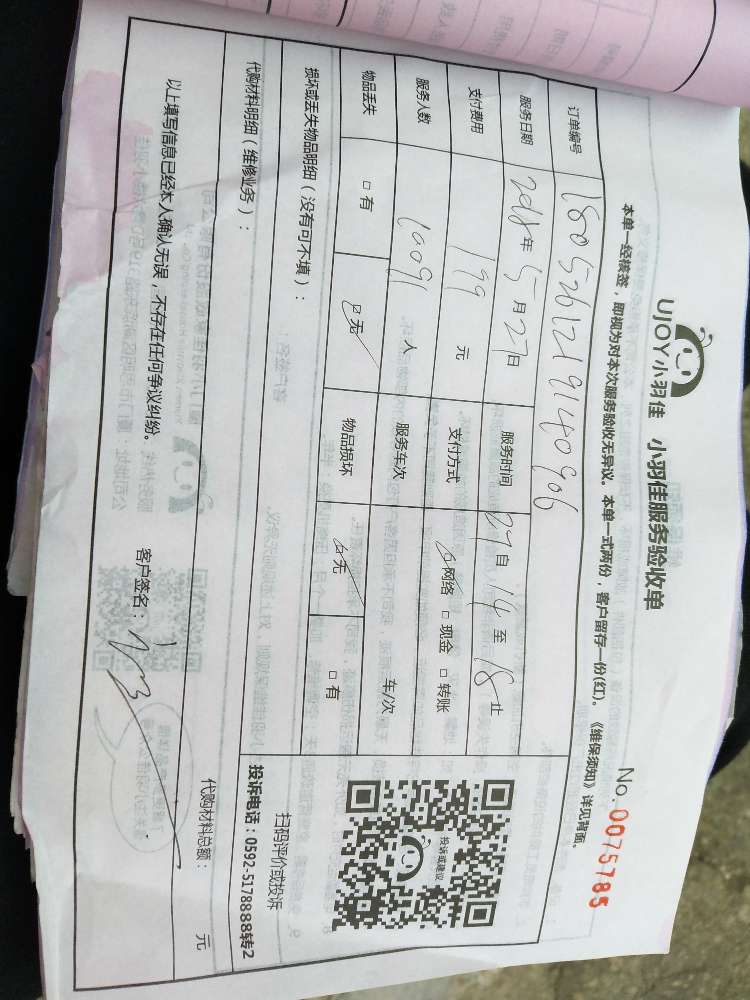 UJOY小羽佳 小羽佳服务验收单
No. 0075785
本单一经核签，即视为对本次服务验收无异议。本单一式两份，客户留存一份(红)。《维保须知》详见背面。
订单编号 1805261219140906
服务日期 2018年5月27日 服务时间 27自14至18止
支付费用 199元 支付方式 ☑网络 □现金 □转账
服务人数 10091人 服务车次 车/次
物品丢失 □有 ☑无 物品损坏 ☑无 □有
损坏或丢失物品明细（没有可不填）：
投诉或建议
扫码评价或投诉
投诉电话：0592-5178888转2
代购材料明细（维修业务）：
代购材料总额： 元
以上填写信息已经本人确认无误，不存在任何争议纠纷。
客户签名：